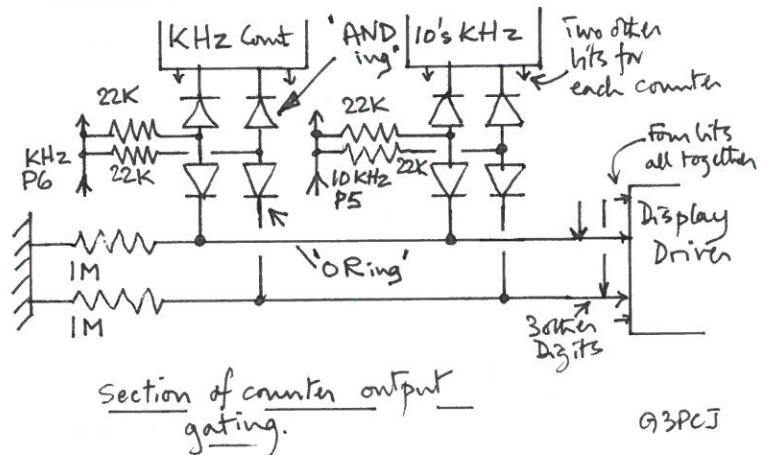 KHz Count
'AND
ing'
10's KHz
Two other
bits for
each counter
22K
22K
KHz
P6
22K
10KHz
P5
22K
Four bits
all together
Display
Driver
1M
'ORing'
1M
3 other
Digits
Section of counter output
gating.
G3PCJ